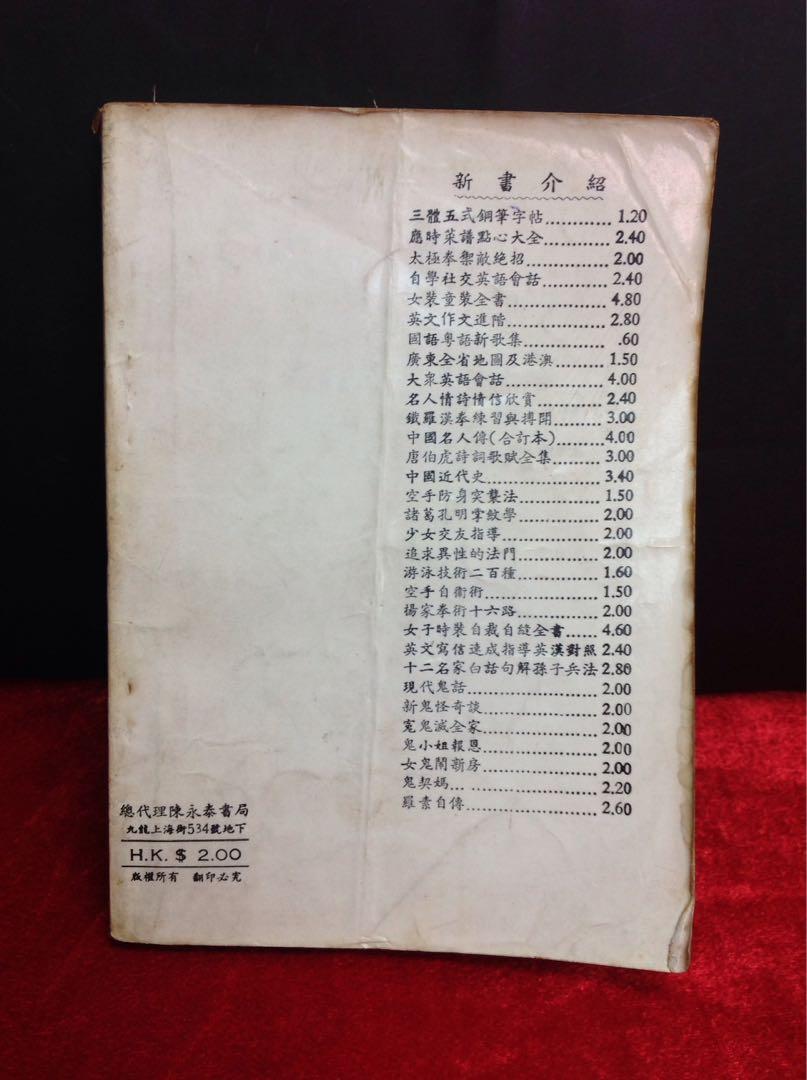 新書介紹
三體五式鋼筆字帖............1.20
應時菜譜點心大全............2.40
太極拳禦敵絕招............2.00
自學社交英語會話............2.40
女裝童裝全書............4.80
英文作文進階............2.80
國語粵語新歌集.............60
廣東全省地圖及港澳............1.50
大眾英語會話............4.00
名人情詩情信欣賞............2.40
鐵羅漢拳練習與搏鬥............3.00
中國名人傳(合訂本)............4.00
唐伯虎詩詞歌賦全集............3.00
中國近代史............3.40
空手防身突襲法............1.50
諸葛孔明掌紋學............2.00
少女交友指導............2.00
追求異性的法門............2.00
游泳技術二百種............1.60
空手自衛術............1.50
楊家拳術十六路............2.00
女子時裝自裁自縫全書......4.60
英文寫信速成指導英漢對照 2.40
十二名家白話句解孫子兵法 2.80
現代鬼話............2.00
新鬼怪奇談............2.00
冤鬼滅全家............2.00
鬼小姐報恩............2.00
女鬼鬧新房............2.00
鬼契媽............2.20
羅素自傳............2.60
總代理陳永泰書局
九龍上海街534號地下
H.K. $ 2.00
版權所有 翻印必究